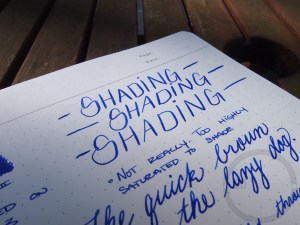 - SHADING -
- SHADING -
- SHADING -
• NOT REALLY. TOO HIGHLY
SATURATED TO SHADE
The quick brown
the lazy dog.
ON